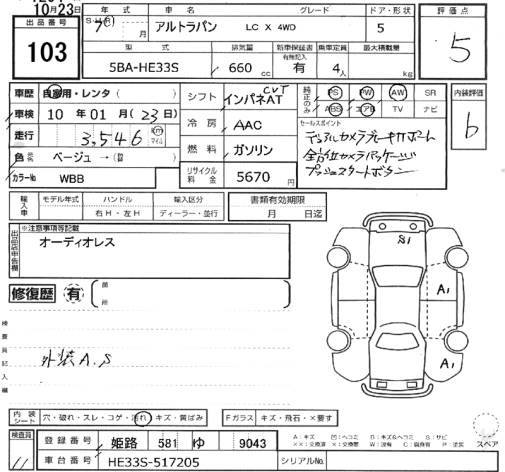 10月23日
年式 車名 グレード ドア・形状 評価点
出品番号 月 アルトラパン LC X 4WD 5
103
型式 排気量 新車保証書 有無記入 乗車定員 最大積載量
5BA-HE33S 660 cc 有 4人 kg
5
車歴 自家用・レンタ( ) シフト インパネAT CVT 純正のみ PS PW AW SR 内装評価
車検 10年 01月(23日) ABS エアB TV ナビ
冷房 AAC セールスポイント
走行 3,546 km マイル デュアルカメラブレーキサポート
b
燃料 ガソリン 全方位カメラパッケージ
色 ベージュ→(替 プッシュスタートボタン
カラーNo WBB リサイクル料金 5670円
輸入車 モデル年式 ハンドル 輸入区分 書類有効期限
右H・左H ディーラー・並行 月 日迄
出品店申告欄 ※注意事項等記載
オーディオレス
S1
A1
修復歴 有 箇所
検査員記入欄
外装A.S
A1
内装シート 穴・破れ・スレ・コゲ・汚れ・キズ・黄ばみ Fガラス キズ・飛石・×要す
A:キズ U:凹ヘコミ B:キズ&ヘコミ S:サビ
スペア
検査員 11 登録番号 姫路 581 ゆ 9043
車台番号 HE33S-517205 シリアルNo.